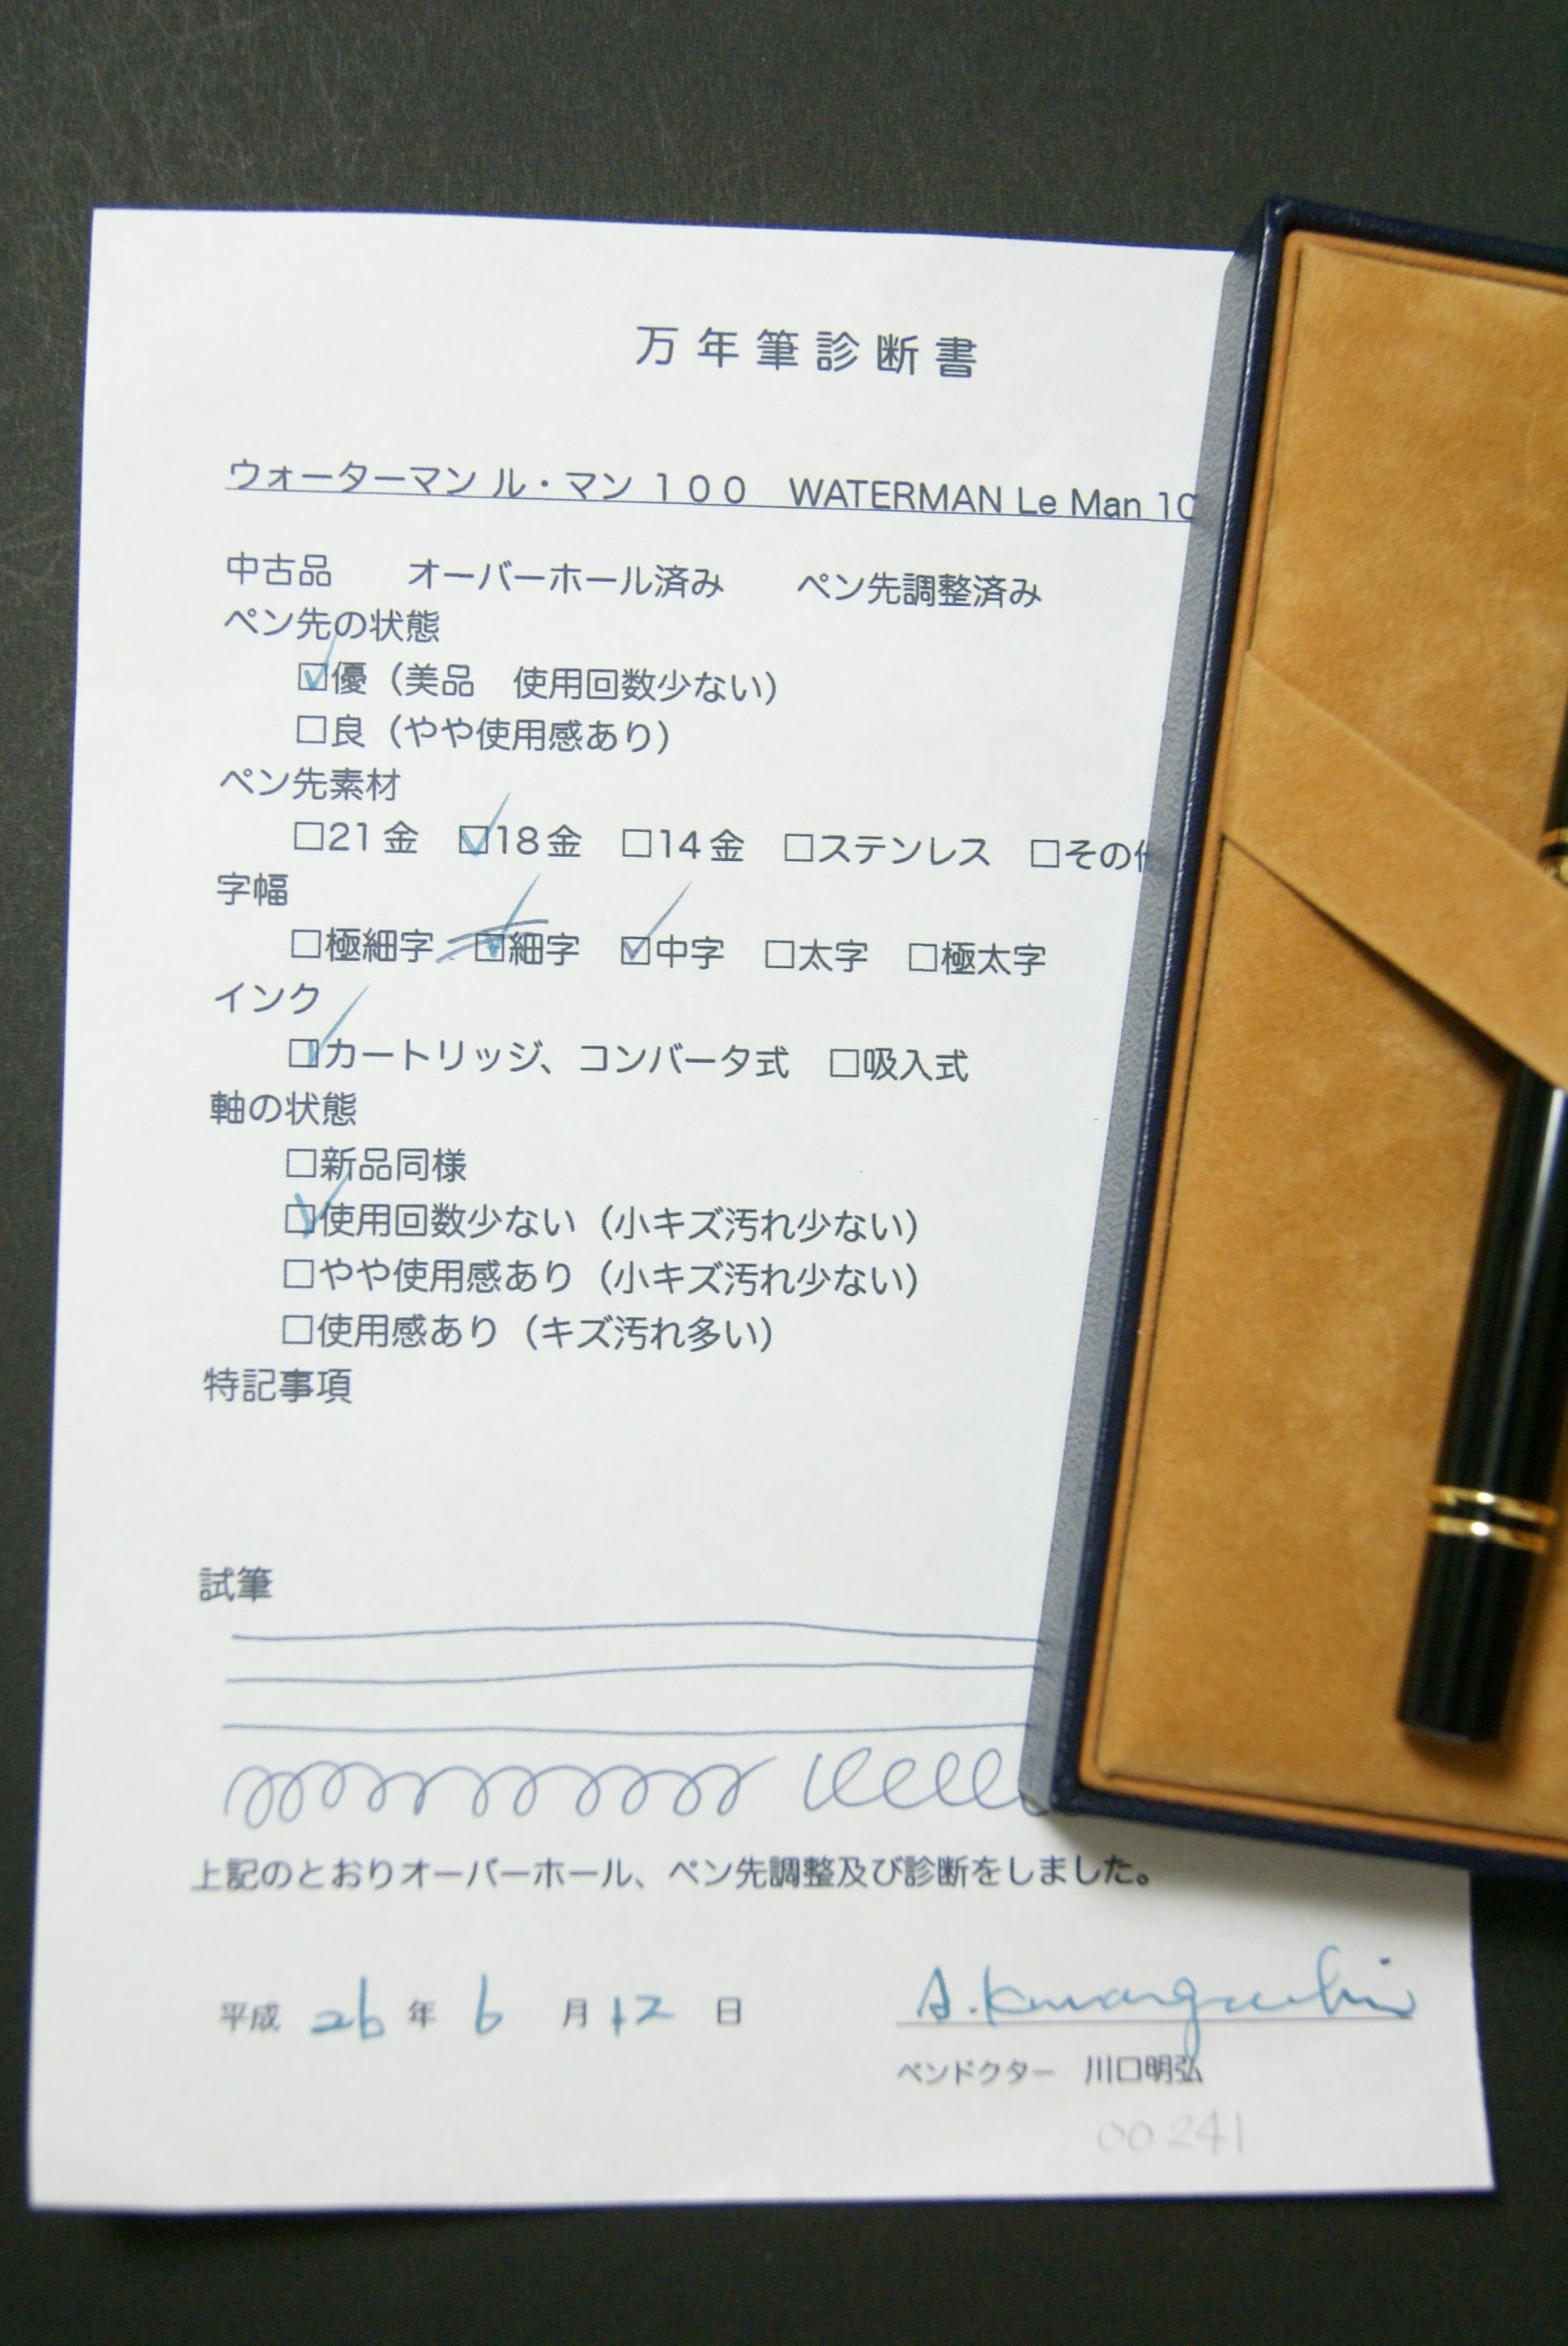 万年筆診断書
ウォーターマン ル・マン 100 WATERMAN Le Man 10
中古品 オーバーホール済み ペン先調整済み
ペン先の状態
☑優（美品 使用回数少ない）
□良（やや使用感あり）
ペン先素材
□21金 ☑18金 □14金 □ステンレス □その他
字幅
□極細字 ☑細字 ☑中字 □太字 □極太字
インク
☑カートリッジ、コンバータ式 □吸入式
軸の状態
□新品同様
☑使用回数少ない（小キズ汚れ少ない）
□やや使用感あり（小キズ汚れ少ない）
□使用感あり（キズ汚れ多い）
特記事項
試筆
上記のとおりオーバーホール、ペン先調整及び診断をしました。
平成 26 年 6 月 12 日
A. Kawaguchi
ペンドクター 川口明弘
00241